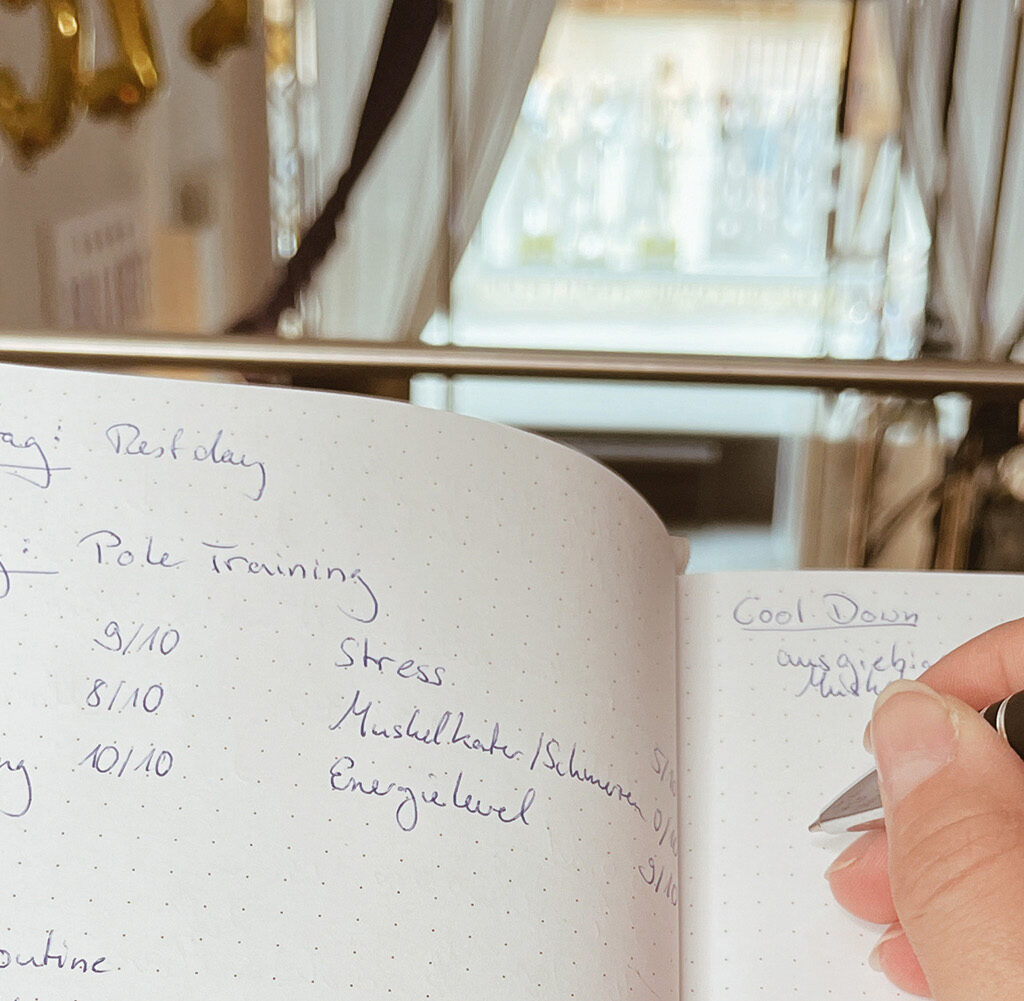 ag: Restday
g: Pole Training
9/10 Stress 5/10
8/10 Muskelkater/Schmerzen 0/10
ng 10/10 Energielevel 9/10
outine
Cool Down
ausgiebig